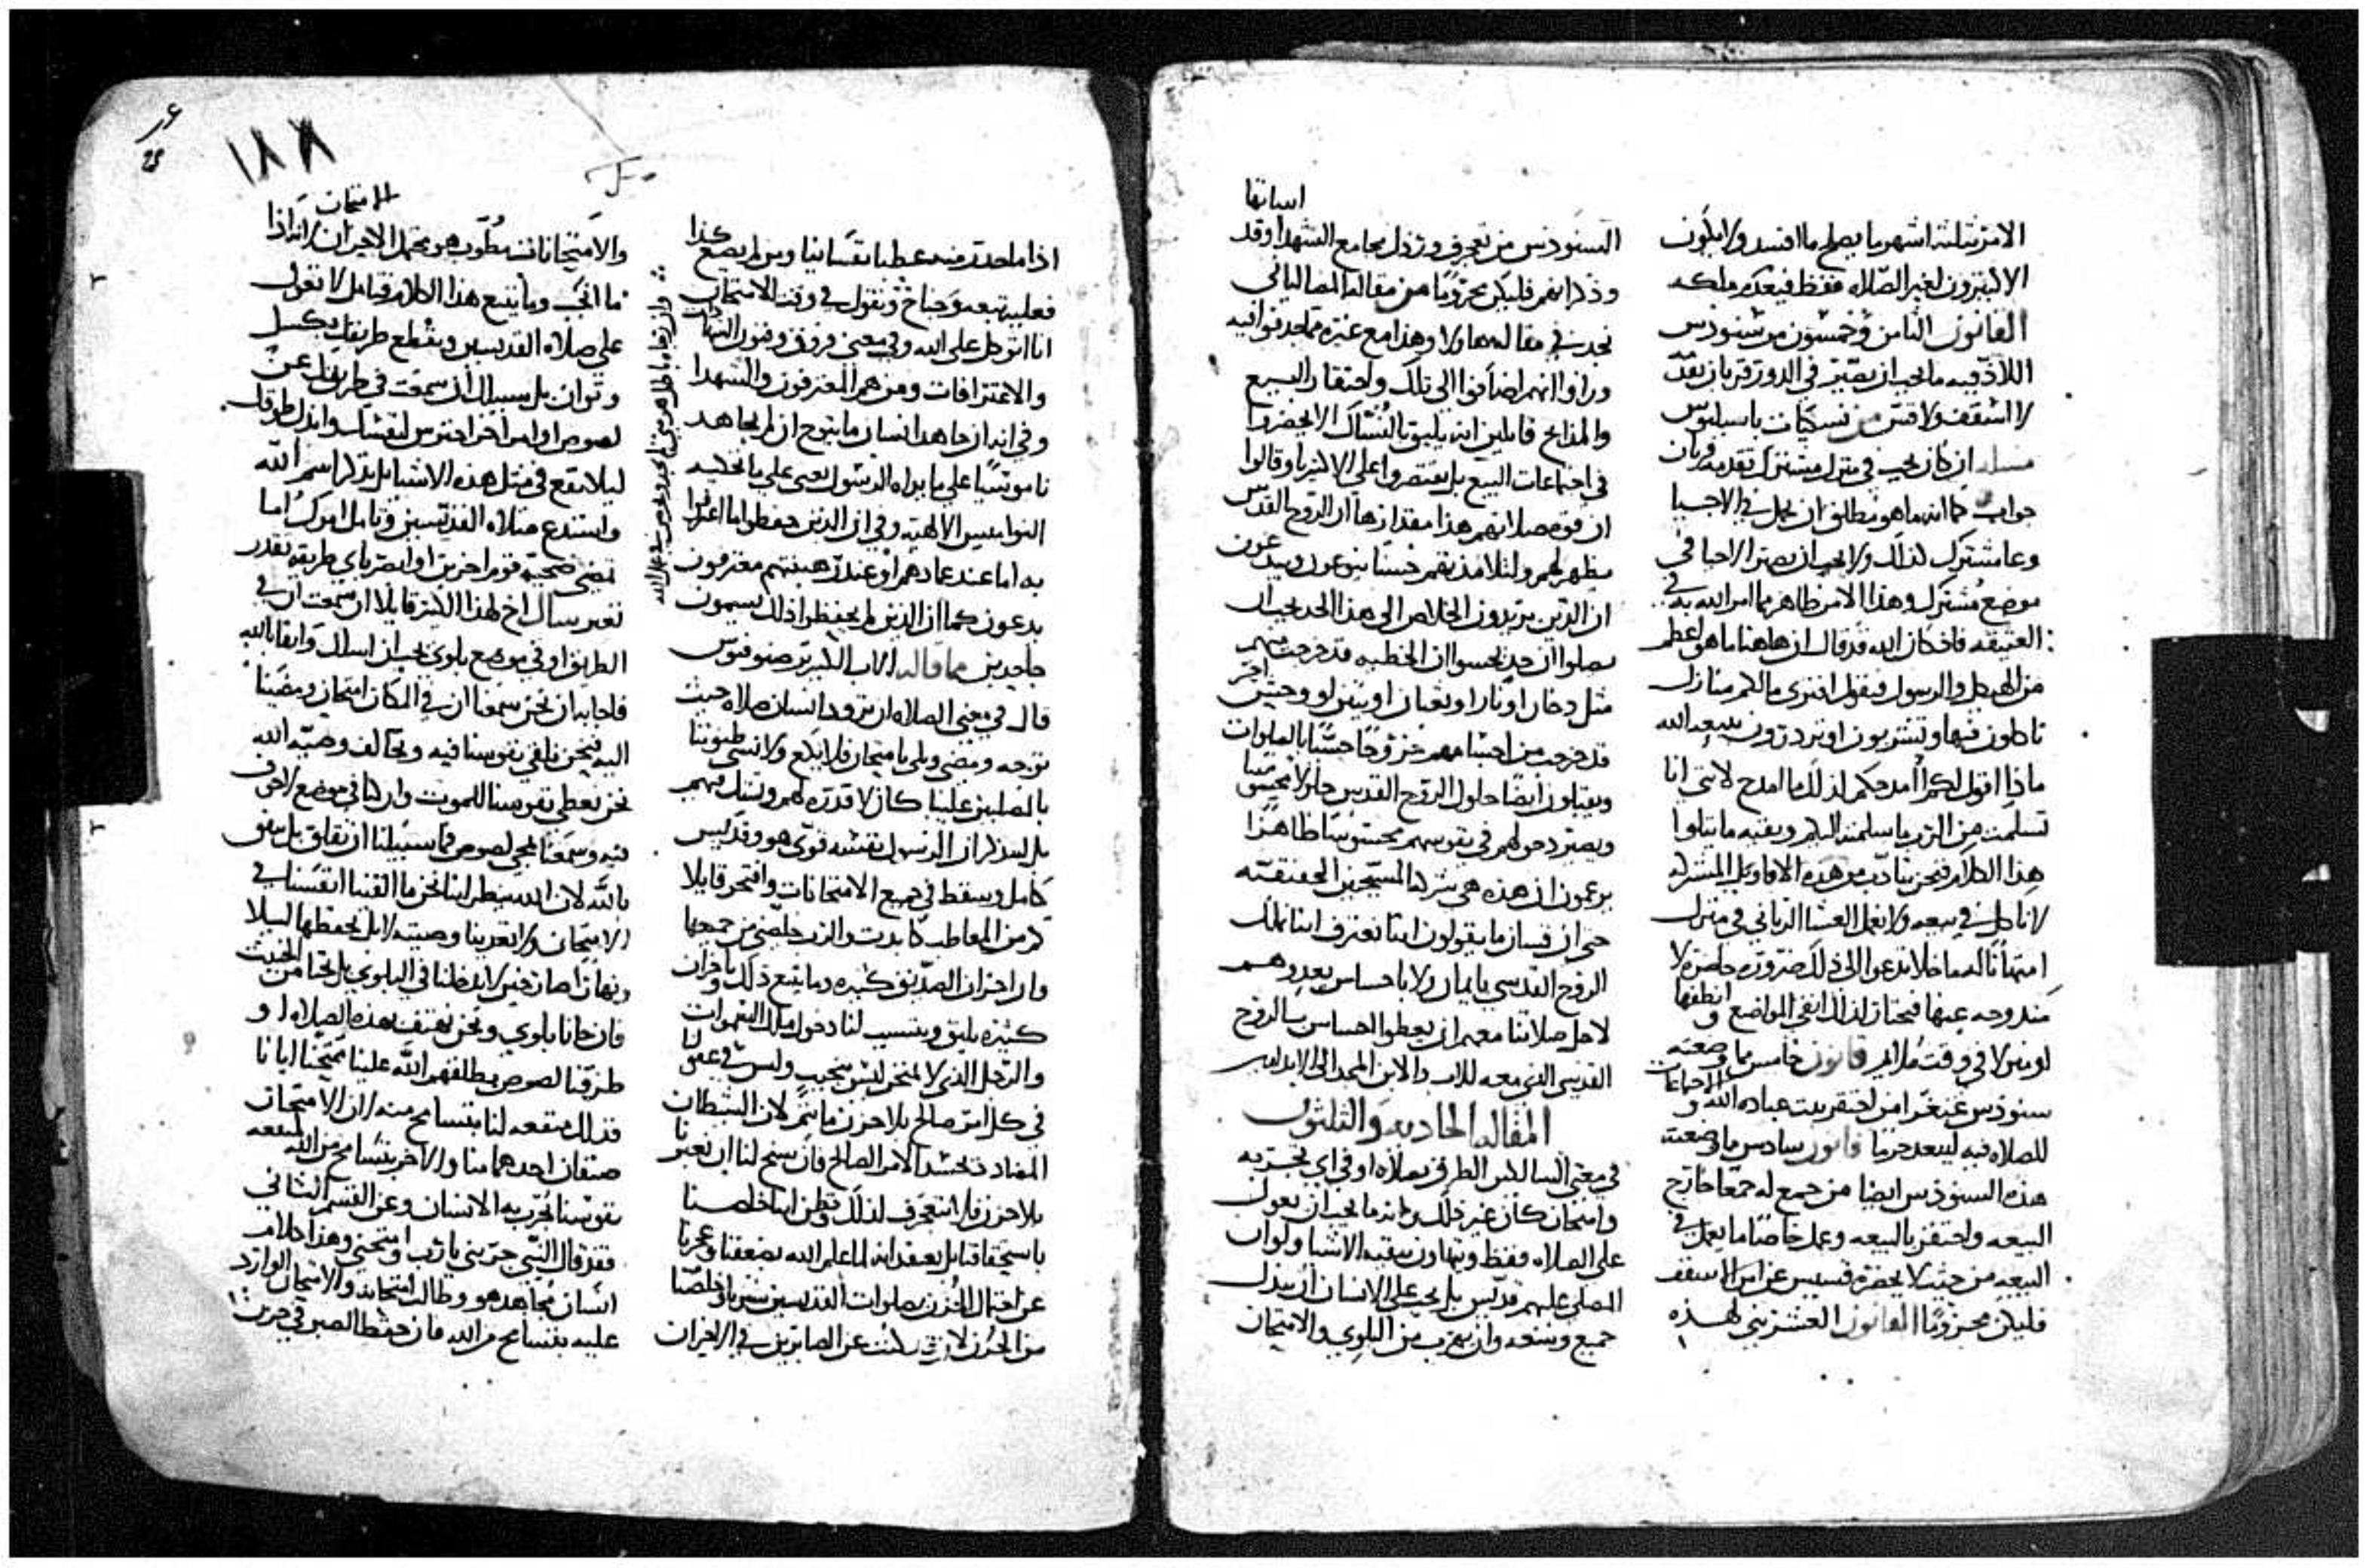 الامر ثلثة اشهر ما يصلح ما افسد ولا يكون
الا يبترون لغير الصلاه فقط فيعدم ملكه
القانون الثامن وخمسون من سنودس
اللاذقيه ما يجب ان يصير في الدور قربان بقد
لا اسقف ولا قس من باسيليوس
مساله ان كان يجب في منزل مشترك تقدمه قربان
جواب كما انه ما هو مطلق ان يحمل في الاجسيا
وعا مشترك لذلك ولا يجب ان يصير الاحيا في
موضع مشترك وهذا الامر ظاهر مما امر الله به في
العتيقه فاذ كان الله قد قال ان هاهنا ما هو اعظم
من الهيكل والرسول فيقول اترى مالكم منازل
تاكلون فيها وتشربون او تزدرون بيعه الله
ماذا اقول لكم امدحكم لذلك ما امدح لانني انا
تسلمت من الرب ما سلمته اليكم وبقيه ما يتلوا
هذا الكلام فنحن نتادب من هذه الاقاويل
لا ناكل في بيعه ولا نعمل العشا الرباني في منزل
الى ذلك ضروره حاضره لا
مندوحه عنها فيختار لذلك انقى المواضع وانظفها
او منزلا في وقت ملايم قانون خامس مما وضعته
سنودس غنغرا من احتقر بيت عباده الله والاجماعات
للصلاه فيه ليبعد حرما قانون سادس ما وضعته
هذه السنودس ايضا من جمع له جمعا خارج
البيعه واحتقر بالبيعه وعمل خاصا ما يعمل في
البيعه من حيث لا يحضره قسيس عن امر الاسقف
فليكن محروما القانون العشرين لهذه
اساتها
السنودس من تعجرف ورذل مجامع الشهدا وقد
وذكرانهم فليكن محروما من مقاله المصاليانى
نجد في مقاله هاولا وهذا مع غيره مما جد فوا فيه
وزادوا انهم اضافوا الى تلك واحتقار البيع
والمذابح قايلين انه يليق بالنساك الا يحضروا
في اجتماعات البيع بل يقتصروا على وقالوا
ان قوه صلاتهم هذا مقدارها ان الروح القدس
يظهر لهم ولتلاميذ بقم حسنا ويدعون
ان الذين يريدون الخلاص الى هذا الحد يجب ان
يصلوا ان حد يحسوا ان الخطيه قد خرجت منهم
مثل دخان او نار او ثعبان او تنين او وحش اخر
قد خرجت من احشايهم خروجا حسيا بالصلوات
ويقبلون ايضا حلول الروح القدس حلولا محسوسا
ويصير دخولهم في نفوسهم محسوسا ظاهرا
يزعمون ان هذه هي شركه المسيحيين الحقيقيه
حتى ان قيسان ما يقولون اننا نعترف اننا نملك
الروح القدسي بايمان ولا باحساس يعدوهم
لاجل صلاتنا معهم ان يعطوا احساس بالروح
القدس الذي معه للاب والابن المجد الى الابد امين
المقاله الحاديه والثلثون
في معنى السالكين الطرق بصلاه او في اي تجربه
وامتحان كان غير ذلك وانه ما يجب ان يعول
على الصلاه فقط ويتهاون ببقيه الاشيا ولو ان
المصلي عليهم قديس بل يجب على الانسان ان يبذل
جميع وسعه وان يهرب من البلوى والامتحان
اذا ما حدث منه عطبا نفسانيا ومن لم يصنع كذا
فعليه تبعه وجناح ونقول في وقت الامتحان
انا اتوكل على الله وفي معنى فروق وفنون الشهادات
والاعترافات ومن هم المعترفون والشهدا
وفي انه ان جاهد انسان ما يتوج ان لم يجاهد
ناموسيا على ما يراه الرسول يعني على ما تخطه
النواميس الالهيه وفي ان الذين حفظوا ما اعترفوا
به اما عند عمادهم او عند رهبنتهم معترفون
يدعون كما ان الذين لم يحفظوا ذلك يسمون
جاحدين مما قاله الاب الكبير برصنوفيوس
قال في معنى الصلاه ان تزود انسان صلاه حيث
توجه ومضى وبلي بامتحان فلا يكع ولا نسي ظنوننا
بالمصلين علينا كان لا قدره لهم ونشك فيهم
بل لنذكر ان الرسول نفسه قوي هو وقديس
كامل وسقط في جميع الامتحانات وافتخر قايلا
كم من المعاطب كابدت والرب خلصني من جميعها
وان احزان الصديق كثيره وما يتبع ذلك باحزان
كثيره يليق ويتسبب لنا دخول ملك السموات
والرجل الذي لا يمتحن ليس بمجرب وليس في عملنا
في كل امر صالح بلا حزن ما يتم لان الشيطان
المضاد يحسد الامر الصالح فان سنح لنا ان نعبر
بلا حزن فلا نتعجرف لذلك ونظن اننا خلصنا
باستحقاقنا بل نعتقد انه لما علم الله بضعفنا وعجزنا
عن احتمال الحزن بصلوات القديسين سترنا وخلصنا
من الحزن لان عن الصابرين في الاحزان
وان زعم
الامتحانات
والامتحانات مطوب هو محتمل الاحزان لانه اذا
ما انتخب وما يتبع هذا الكلام وقبل لا تعول
على صلاه القديسين وتقطع طريقك بكسل
وتوان بل سبيلك ان سمعت في طريقك عن
لصوص او امر اخر احترس لنفسك وابذل طوقك
ليلا تقع في مثل هذه الاشيا بل بتذكار اسم الله
واستدع صلاه القديسين وتامل امورك اما
تمضي صحبه قوم اخرين او ابصر باي طريقه تقدر
تعبر سال اخ لهذا الكبير قايلا ان سمعت ان في
الطريق او في موضع بلوى يجب ان اسلك واثقا بالله
فاجابه ان نحن سمعنا ان في المكان امتحان ومضينا
اليه فنحن نلقي نفوسنا فيه ونخالف وصيه الله
نحن نعطي نفوسنا للموت وان كنا في موضع لا خوف
فيه وسمعنا بمجي لصوص فما سبيلنا ان نقلق بل نثق
بالله لان الله ينظر اننا نحن ما القينا انفسنا في
الامتحان ولا تعدينا وصيته لا بل نحفظها ليلا
ونهارا صارخين لا تدخلنا في البلوى بل نجنا من الخبيث
فان جاتنا بلوى ونحن نهتف بهذه الصلاه او
طرقنا لصوص يطلقهم الله علينا ممتحنا ايانا
فذلك منفعه لنا بتسامح منه لان الامتحان
صنفان احدهما منا والاخر بتسامح من الله لمنفعه
نفوسنا يجرب به الانسان وعن القسم الثاني
فقد قال النبي جربني يارب وامتحني وهذا كلام
انسان مجاهد هو وطالب امتحانه والامتحان الوارد
عليه بتسامح من الله فان حفظ الصبر في حرب
١٨٨